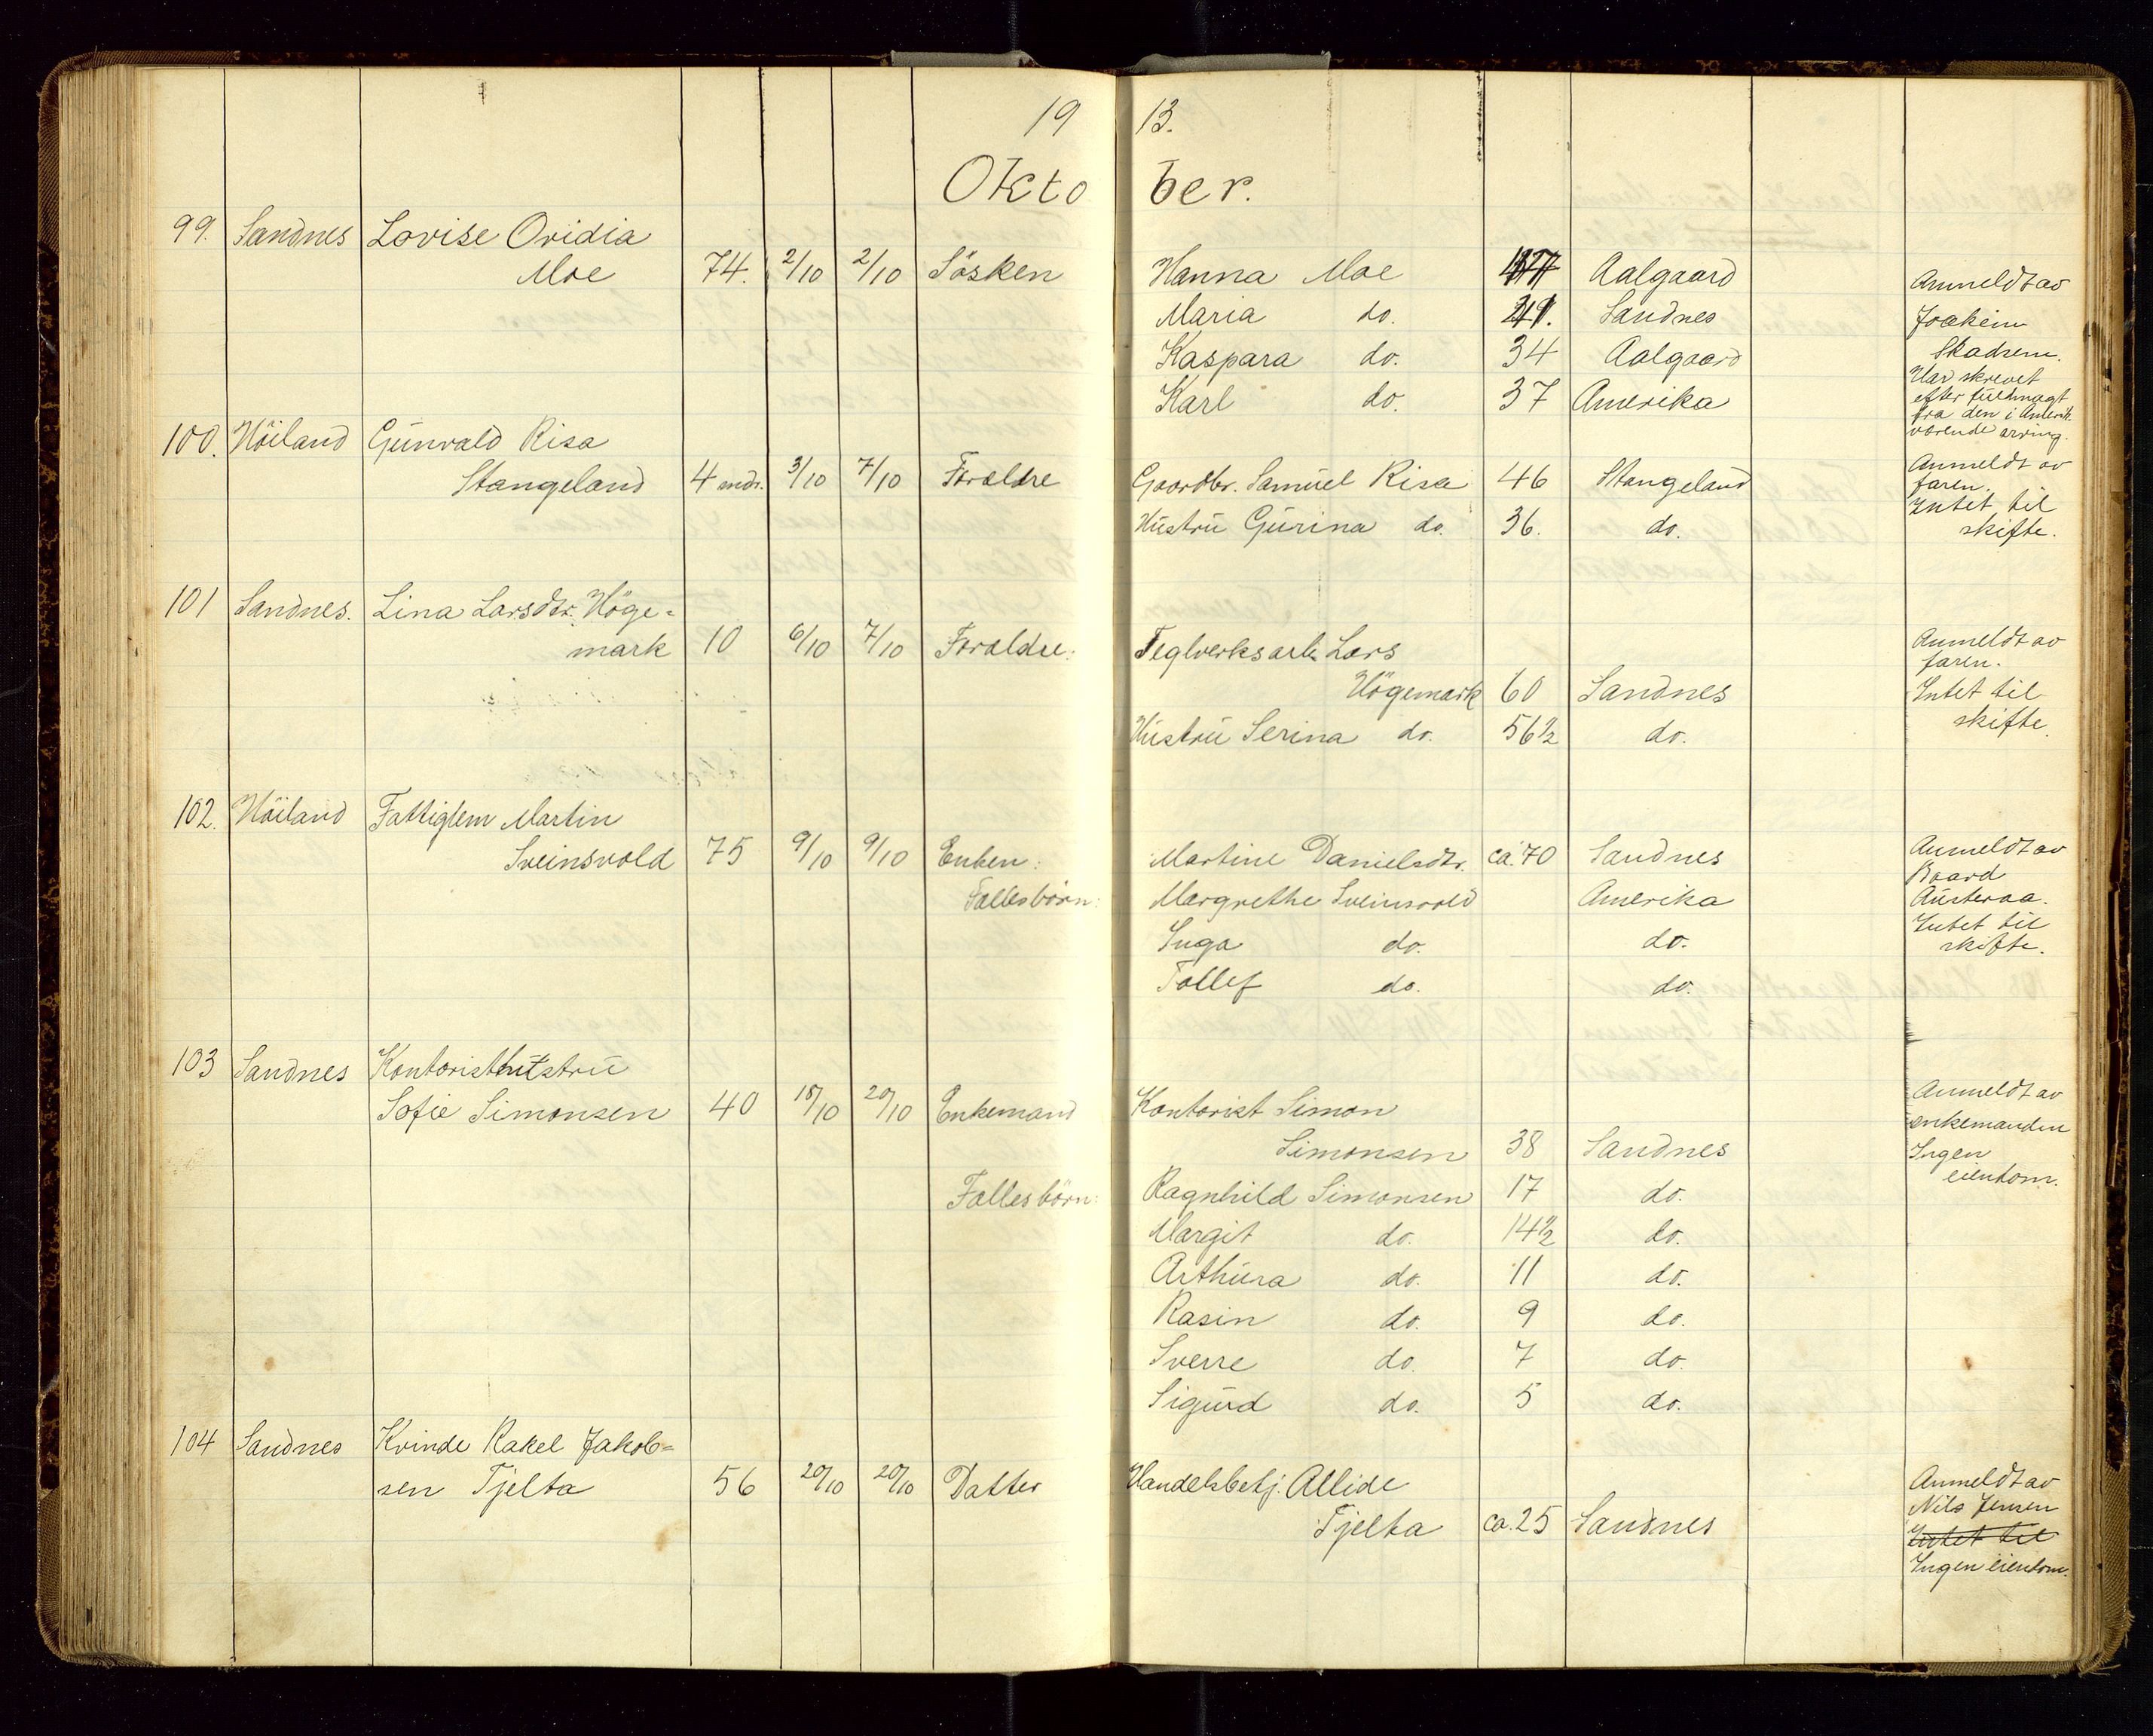 19 13.
Oktober.
99. Sandnes Lovise Ovidia
Moe 74. 2/10 2/10 Søsken Hanna Moe Aalgaard Anmeldt av
Maria do. Sandnes Joakim
Kaspara do. 34 Aalgaard Skadsem.
Karl do. 37 Amerika Har skrevet
efter fuldmagt
fra den i Amerik.
værende arving.
100. Höiland Gunvald Risa
Stangeland 4 mdr. 3/10 7/10 Forældre Gaardbr. Samuel Risa 46 Stangeland Anmeldt av
faren.
Hustru Gurina do. 36. do. Intet til
skifte.
101 Sandnes. Lina Larsdtr. Høge-
mark 10 6/10 7/10 Forældre: Teglverksarb. Lars Anmeldt av
faren.
Högemark 60 Sandnes Intet til
Hustru Serina do. 56 1/2 do. skifte.
102. Höiland Fattiglem Martin
Sveinsvold 75 9/10 9/10 Enken: Martine Danielsdtr. ca. 70 Sandnes Anmeldt av
Baard
Fællesbørn: Margrethe Sveinsvold Amerika Austeraa.
Inga do. do. Intet til
skifte.
Tollef do. do.
103 Sandnes Kontoristhustru
Sofie Simonsen 40 18/10 20/10 Enkemand Kontorist Simon Anmeldt av
enkemanden
Simonsen 38 Sandnes Ingen
Fællesbørn: Ragnhild Simonsen 17 do. eiendom.
Margit do. 14 1/2 do.
Arthura do. 11 do.
Rasin do. 9 do.
Sverre do. 7 do.
Sigurd do. 5 do.
104 Sandnes Kvinde Rakel Jakob-
sen Tjelta 56 20/10 20/10 Datter Handelsbetj. Allide Anmeldt av
Nils Jensen
Tjelta ca. 25 Sandnes Intet til
Ingen eiendom.